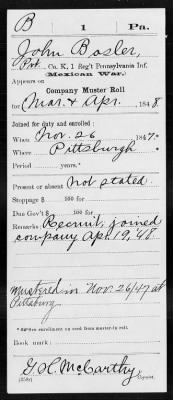 B 1 Pa.
John Bosler,
Pvt., Co. K, 1 Reg't Pennsylvania Inf.
(Mexican War.)
Appears on
Company Muster Roll
for Mar. & Apr., 1848.
Joined for duty and enrolled:
When Nov. 26, 1847.*
Where Pittsburgh *
Period years.*
Present or absent Not stated.
Stoppage $ 100 for
Due Gov't $ 100 for
Remarks: Recruit, joined
company Apr. 19, 48.
Mustered in Nov. 26/47 at
Pittsburg
Book mark:
G. O. C. McCarthy,
Copyist.